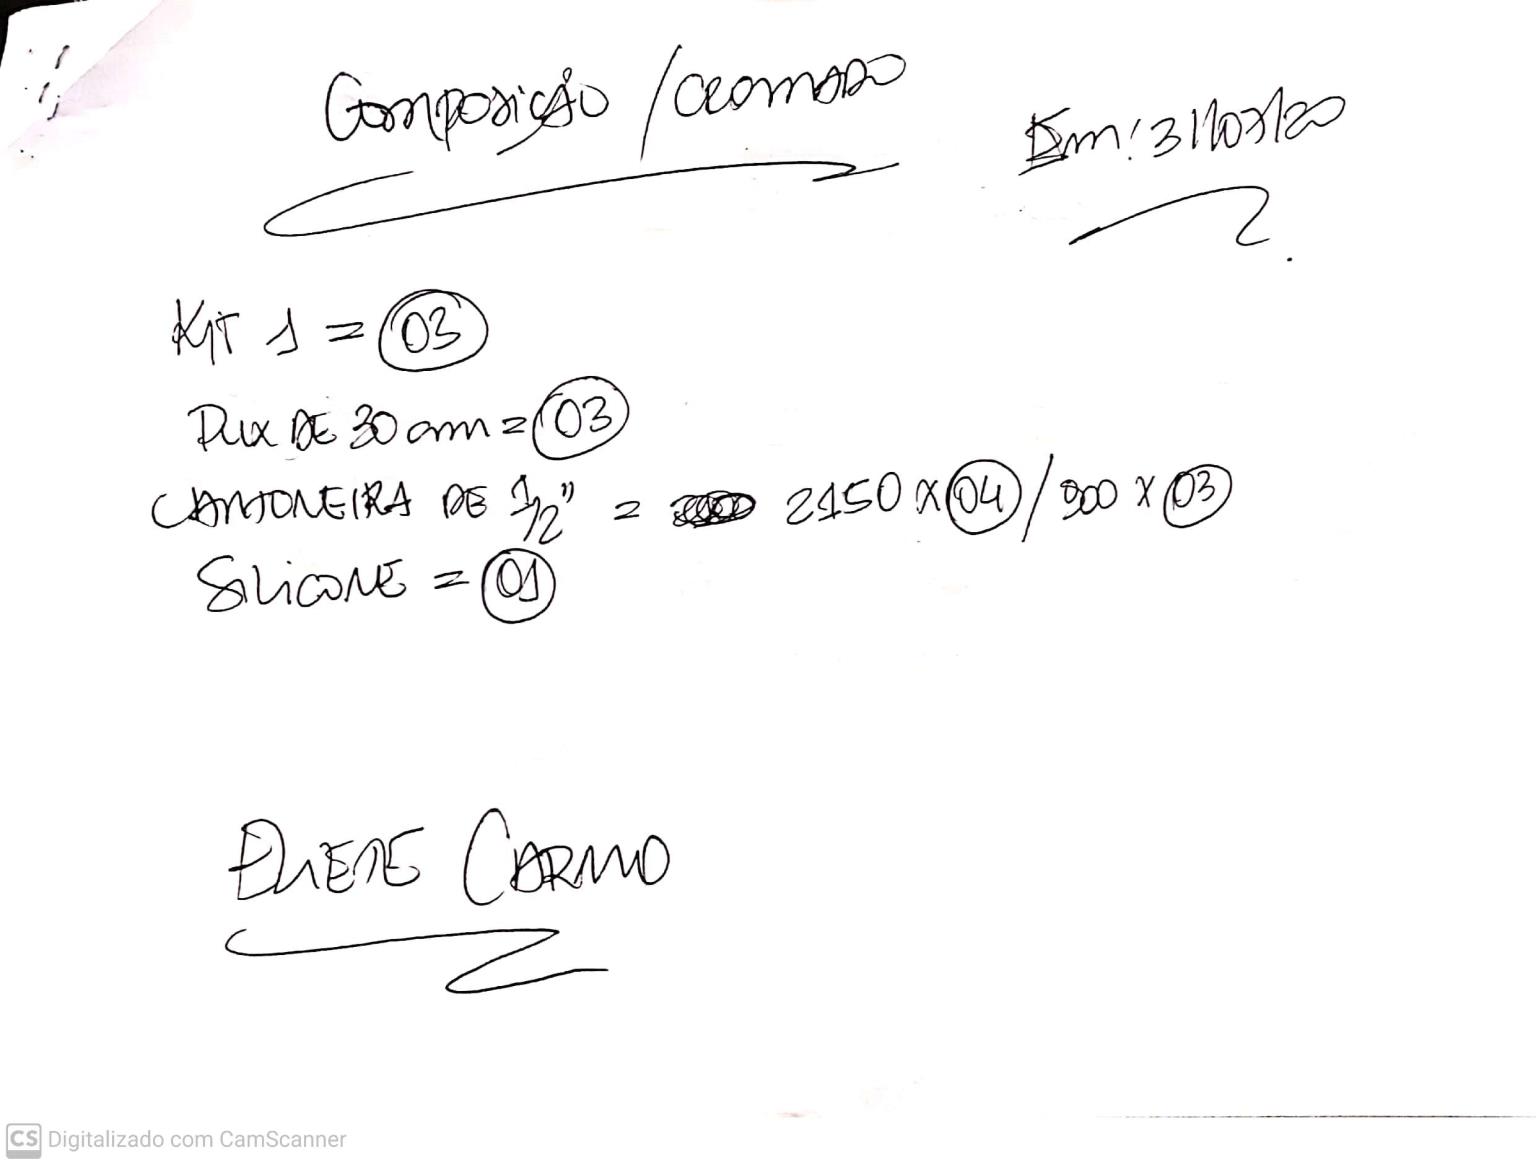 Composição / Cromado
Em: 31/07/20
KIT 1 = 03
PUX DE 30 cm = 03
CANTONEIRA DE 1/2" = 2150 X 04 / 900 X 03
SILICONE = 01
ELIETE CARMO
CS Digitalizado com CamScanner